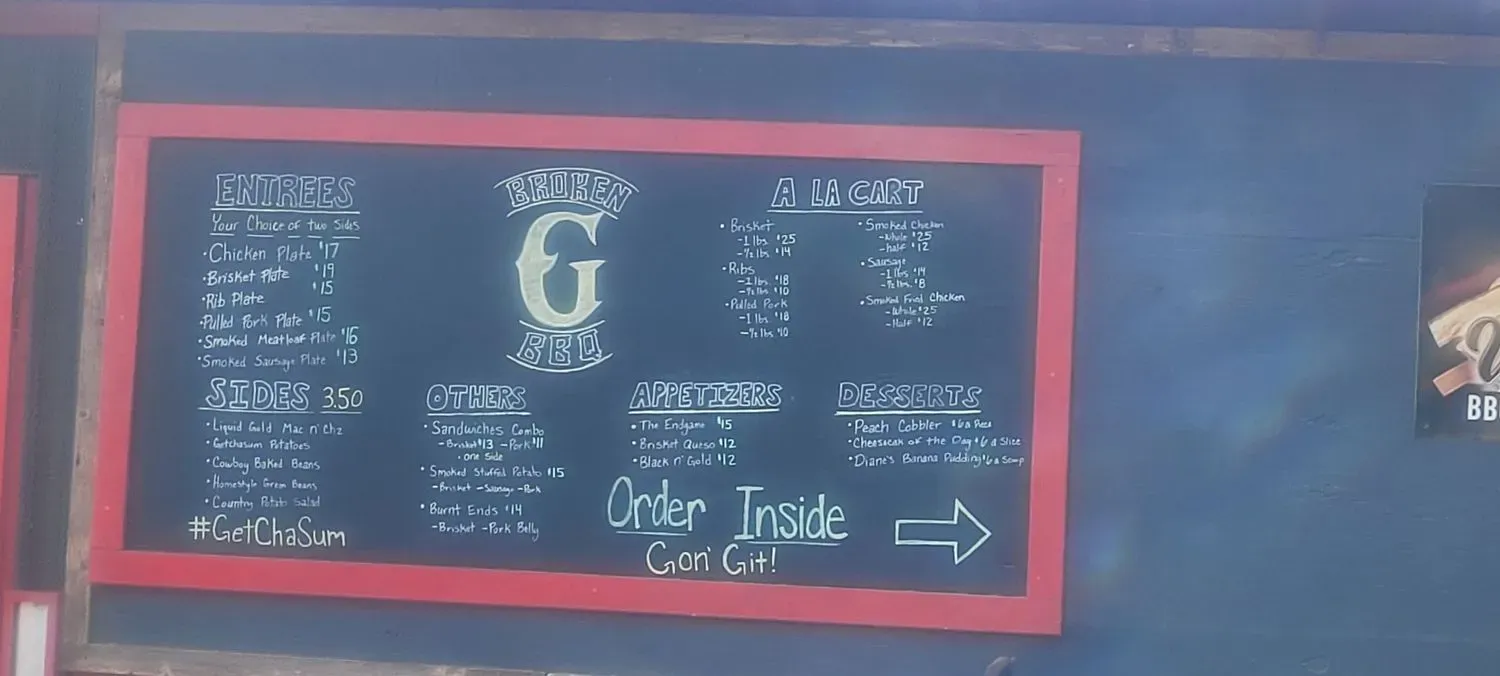 ENTREES
Your Choice of two sides
• Chicken Plate $17
• Brisket Plate $19
• Rib Plate $15
• Pulled Pork Plate $15
• Smoked Meatloaf Plate $16
• Smoked Sausage Plate $13
BROKEN
G
BBQ
A LA CART
• Brisket
-1 lbs. $25
-½ lbs. $14
• Ribs
-1 lbs. $18
-½ lbs. $10
• Pulled Pork
-1 lbs. $18
-½ lbs. $10
• Smoked Chicken
-Whole $25
-half $12
• Sausage
-1 lbs. $14
-½ lbs. $8
• Smoked Fried Chicken
-Whole $25
-Half $12
SIDES 3.50
• Liquid Gold Mac n' Chz
• Getchasum Potatoes
• Cowboy Baked Beans
• Homestyle Green Beans
• Country Potato Salad
#GetChaSum
OTHERS
• Sandwiches Combo
-Brisket $13 -Pork $11
• one side
• Smoked Stuffed Potato $15
-Brisket -Sausage -Pork
• Burnt Ends $14
-Brisket -Pork Belly
APPETIZERS
• The Endgame $15
• Brisket Queso $12
• Black n' Gold $12
DESSERTS
• Peach Cobbler $6 a Piece
• Cheesecak of the Day $6 a Slice
• Diane's Banana Pudding $6 a Scoop
Order Inside
Gon' Git!
BB